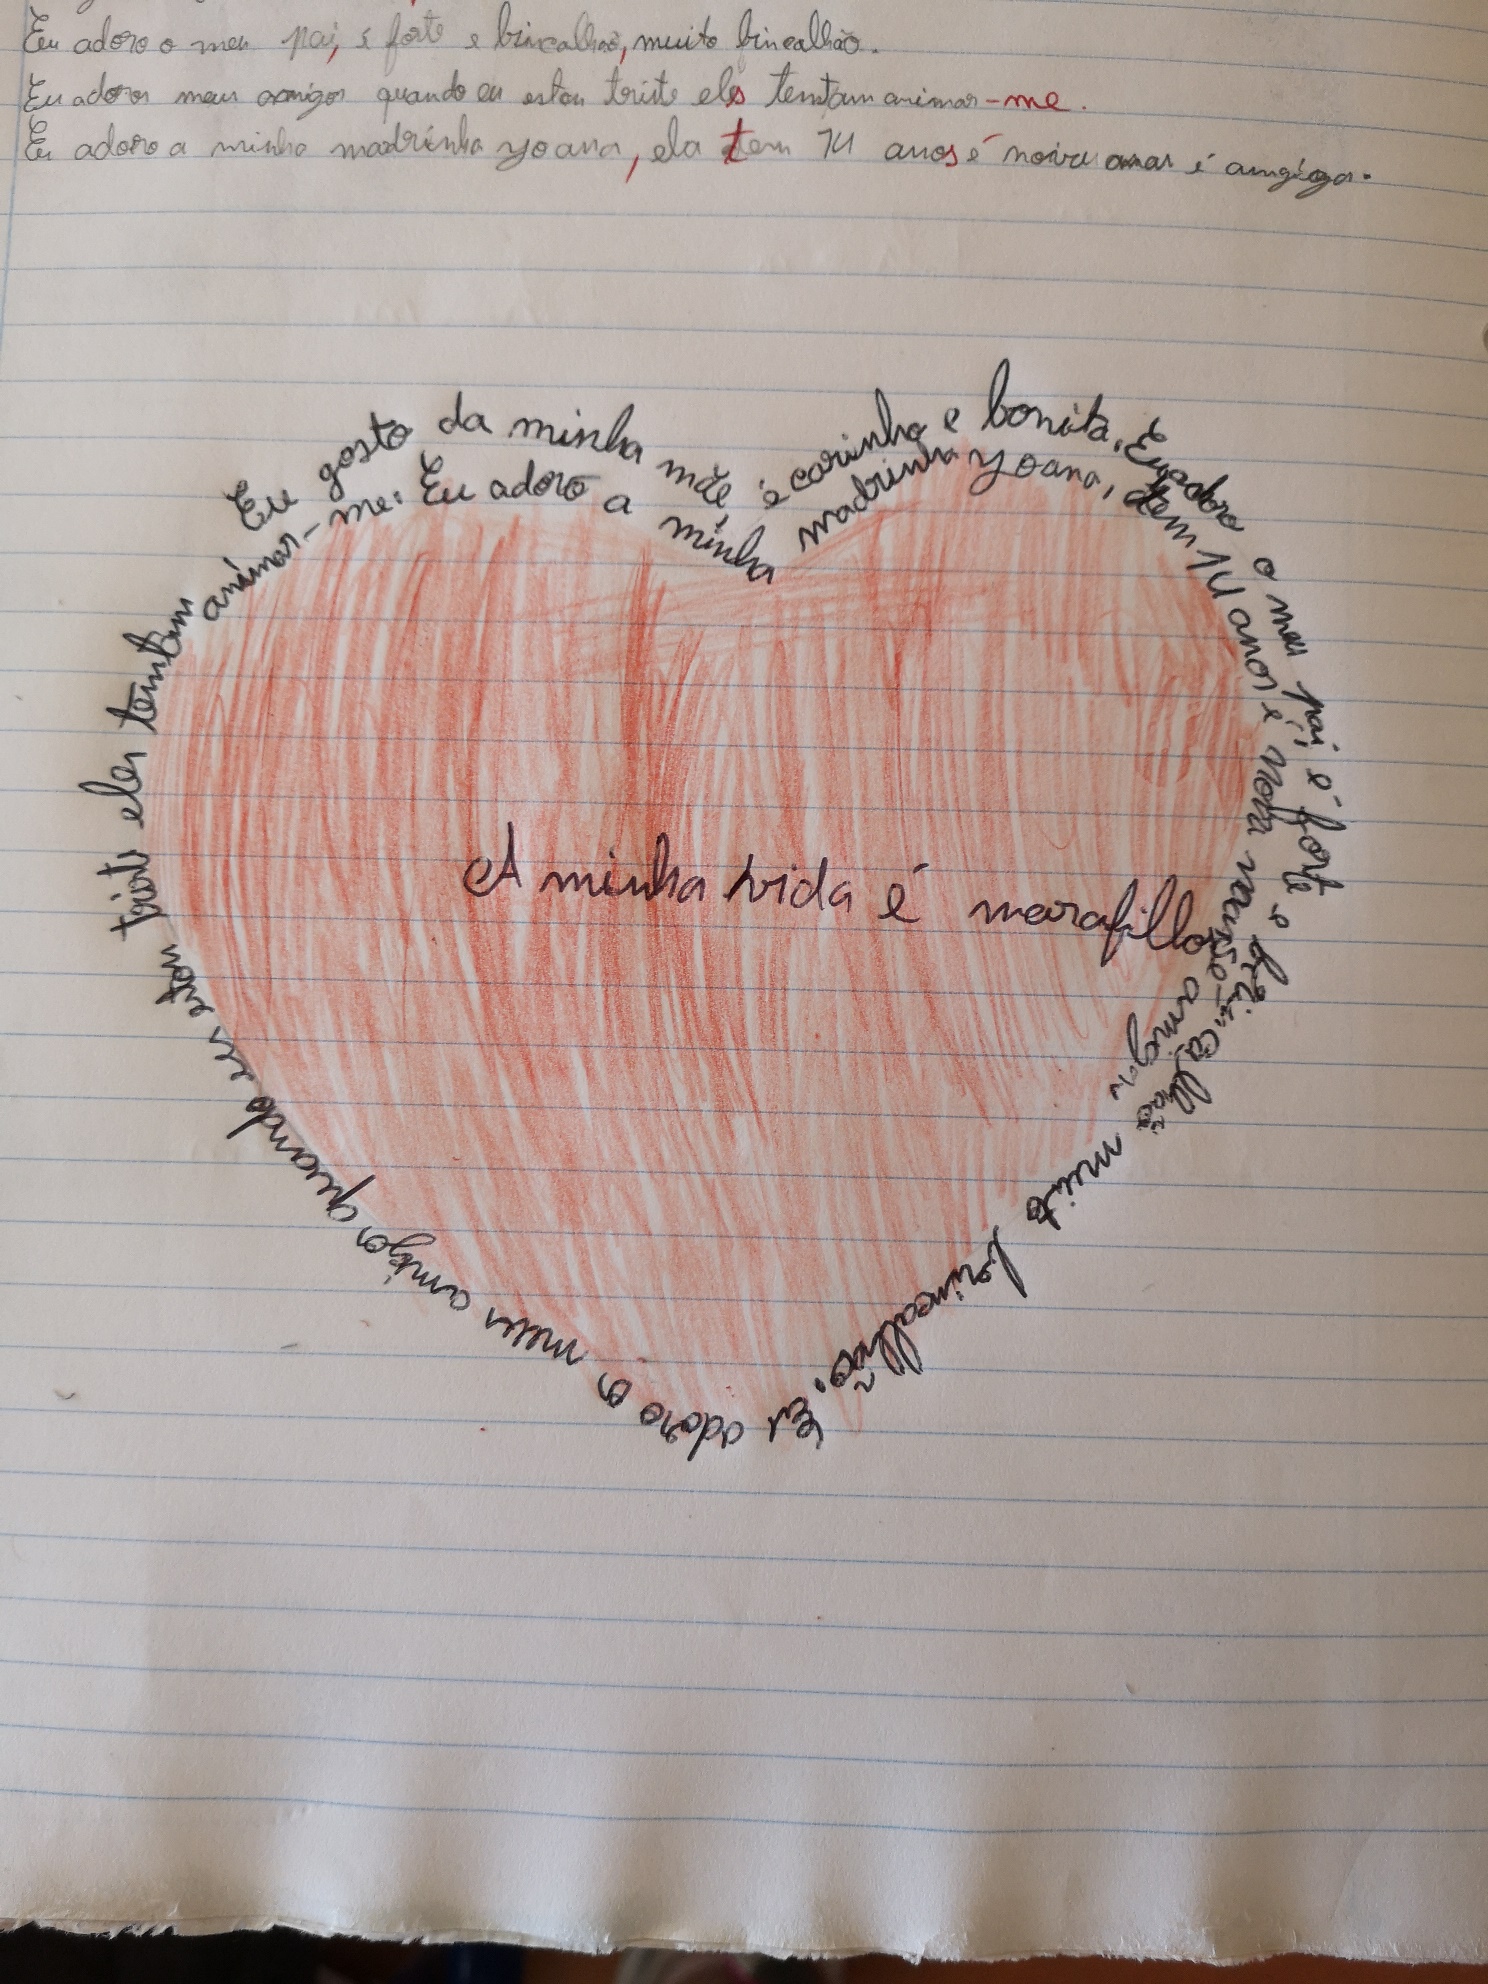 Eu adoro o meu pai, é forte e bincalhão, muito bincalhão.
Eu adoro os meus amigos quando eu estou triste eles temtam animar-me.
Eu adoro a minha madrinha yoana, ela tem 14 anos é é amgiga.
Eu gosto da minha mãe, é carinha e bonita. Eu adoro o meu pai, é forte e brincalhão muito brincalhão. Eu adoro os meus amigos quando eu estou triste eles temtam animar-me. Eu adoro a minha madrinha yoana, tem 14 anos é nova amiga
A minha vida é marafilloso